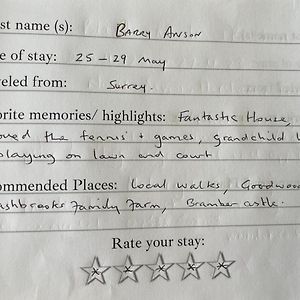 st name (s): Barry Anson
e of stay: 25 - 29 May
eled from: Surrey.
orite memories/ highlights: Fantastic House,
oved the tennis + games, grandchild l
playing on lawn and court
ommended Places: local walks, Goodwood
ashbrooks Family Farm, Bramber castle.
Rate your stay: